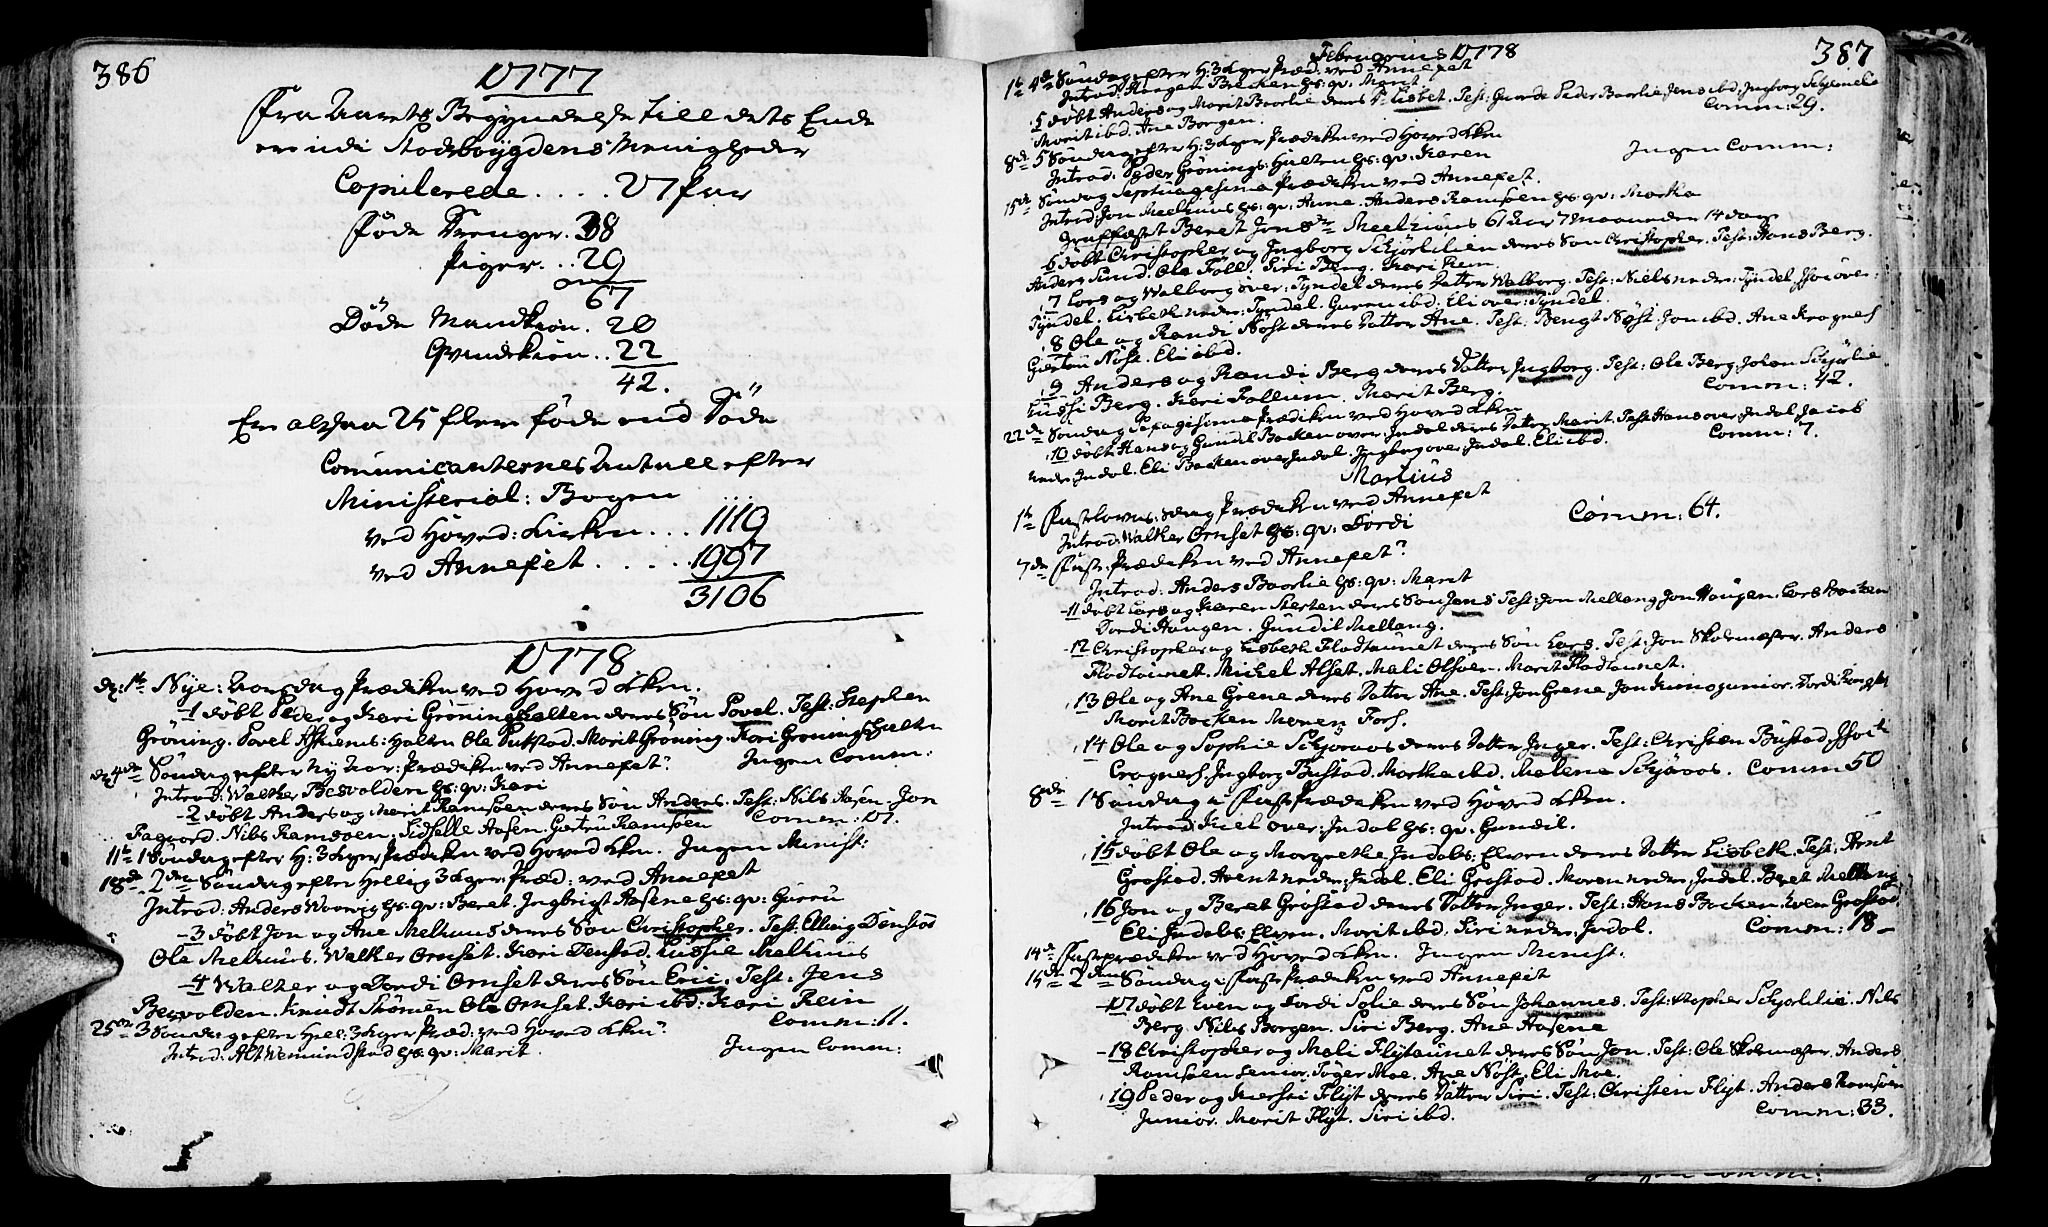 386
1777
Fra Aarets Begyndelse till dets Ende
ere udi Stodsboygdens Menigheder
Copulerede .... 27 par
føde Drenger. 38
piger... 29
67
Døde Mandkiøn. 20
Qvindekiøn.. 22
42.
Er altsaa 25 flere føde end Døde
Comunicanternes Antall efter
Ministerial: Bogen
ved Hoved: Kirken... 1119
ved Annexet ..... 1997
3106
1778
d: 1te Nye: Aars dag Prædiken ved Hoved Kken.
-1 døbt Peder og Kari Grønings halten deres Søn Povel. Test: Stephen
Grøning. Povel Halten Ole Marit Grøning. Kari Grønings halten
d: 4de Søndag efter Ny Aar: prædiken ved Annexet. Ingen Comm:
Introd: Walter Besvolden hs: qv: Kari
-2 døbt Anders og Marit Ramsøen deres Søn Anders. Test: Nils Aasen. Jon
Fagvord. Nils Ramsøen. Sidselle Aasen. Gørtru Ramsøen Comm: 17.
11te 1 Søndag efter H: 3 Kger Prædiken ved Hoved Kken. Ingen Minist:
18de 2den Søndag efter Hellig 3 Kger: Præd: ved Annexet
Introd: Anders hs: qv: Beret. Ingbrigt Aasene hs: qv: Guru
-3 døbt Jon og Ane Melhuus deres Søn Christopher. Test: Elling Denstad
Ole Melhuus. Walter Ornset. Kari Denstad. Melhuus
-4 Walter og Dordi Ornset deres Søn Eric. Test: Jens
Besvolden. Knudt Strømen Ole Ornset. Kari ibd: Kari Rein
25de 3 Søndag efter Hell: 3 Kger Præd: ved Hoved Kken. Comm: 11.
Introd: Alt hs: qv: Marit. Ingen Comm:
Februarius 1778
387
1te 4de Søndag efter H: 3 Kger Præd: ved Annexet
Introd: Haagen Breken hs: qv: Marit
.5 døbt Anders og Marit Baarlie deres D: Lisbet. Test: Peder Baarlie Jens ibd. Ingborg
Marit ibd. Ane Borgen. Comm: 29.
8de 5 Søndag efter H: 3 Kger Prædiken ved Hoved Kken
Introd: Peder Grønings: halten hs: qv: Karen Ingen Comm:
15de Søndag Septuagesima Prædiken ved Annexet.
Introd: Jon Melhuus hs: qv: Anne. Anders Ramsøen hs: qv: Marta
Graffæst Beret Jons dr Meelhuus 61 Aar 7 Maaneder 14 dage
6 døbt Christopher og Ingborg Schjørlilien deres Søn Christopher. Test: Hans Berg.
Anders Sund. Ole Foll. Siri Berg. Kari Rem.
7 Lars og Walborg over: Tyndel deres Datter Walborg. Test: Niels neder: Tyndel over:
Tyndel. Lisbeth neder: Tyndel. Guren ibd. Eli over: Tyndel.
.8 Ole og Randi Nøst deres Datter Ane. Test. Bengt Nøst Jon ibd. Ane Kragnes
Giertru Nøst. Eli ibd.
.9 Anders og Randi Berg deres Datter Ingborg. Test: Ole Berg. Johan Schjørlie
Berg. Kari Follum. Marit Berg. Comm: 42.
22de Søndag Sexagesima Prædiken ved Hoved Kken
.10 døbt Hans og Gundel Backen over: Indal deres Datter Marit. Test Hans over: Indal Jacob
neder Indal. Eli Backen over Indal. Ingborg over: Indal. Eli ibd. Comm: 7.
Martius
1te Fastelavns: søndag Prædiken ved Annexet
Introd: Walter Ornset hs: qv: Dordi Comm: 64.
7de Faste Prædiken ved Annexet
Introd: Anders Baarlie hs: qv: Marit
-11 døbt Lars og Karen Sterten deres Søn Jens Test: Jon Mellang Jon Haugen. Lars Backen
Dordi Haugen. Gundil Mellang.
-12 Christopher og Lisbeth Flodtaunet deres Søn Lars. Test: Jon Skolemester. Anders
Flodtaunet. Michel Alset. Mali Olsøen. Marit Flodtaunet.
.13 Ole og Ane Grene deres Datter Ane. Test: Jon Grene Jon junior. Dordi
Marit Backen Maren Fors.
.14 Ole og Sophie Schjøraas deres Datter Inger. Test: Christen Bustad.
Cragnes. Ingborg Bustad. Martha ibd. Malena Schjøraas. Comm: 50
8de 1 Søndag i Faste Prædiken ved Hoved Kken.
Introd: Kiel over: Indal hs: qv: Gundil.
.15 døbt Ole og Margrethe Indals: Elven deres Datter Lisbeth. Test: Arent
Grøstad. Arent neder: Indal. Eli Grøstad. Maren neder: Indal. Beret Mellang
.16 Jon og Beret Grøstad deres Datter Inger. Test: Hans Backen. Even Grøstad
Eli Indals: Elven. Marit ibd. Siri neder: Indal. Comm: 18-
14de Fasteprædiken ved Hoved Kken. Ingen Minist:
15de 2den Søndag i Faste Prædiken ved Annexet
-17 døbt Even og Dordi Solie deres Søn Johannes. Test: Stopher Schjørlilie. Nils
Berg. Nils Borgen. Siri Berg. Ane Aasene
-18 Christopher og Mali Flytaunet deres Søn Jon. Test: Ole Skolemester. Anders
Ramsøen senior. Toger Moe. Ane Nøst. Eli Moe.
.19 Peder og Kiersti Flyt deres Datter Siri. Test: Christen Flyt. Anders Ramsøen
Junior. Marit Flyt. Siri ibd. Comm: 33.